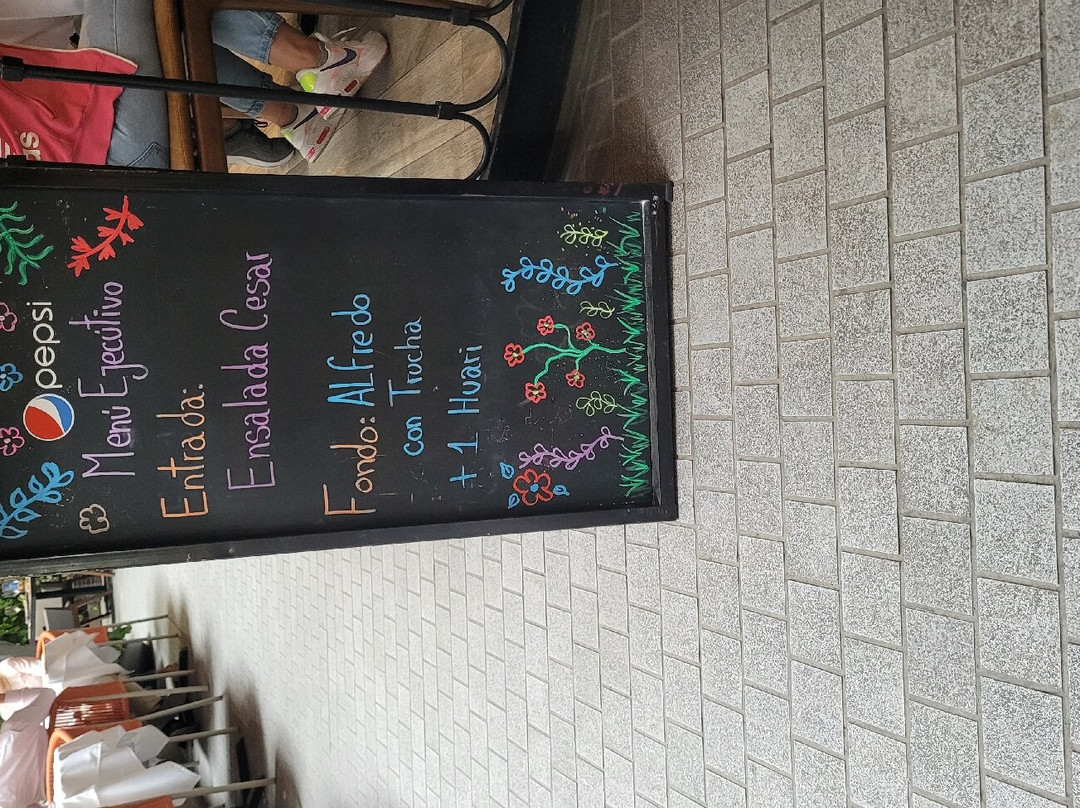 pepsi
Menú Ejecutivo
Entrada:
Ensalada Cesar
Fondo: ALfredo
con Trucha
+ 1 Huari